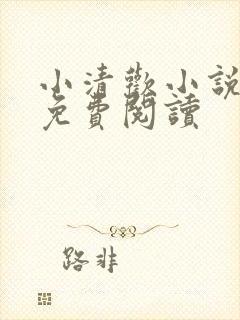 小清歡小說
免費閱讀
路非